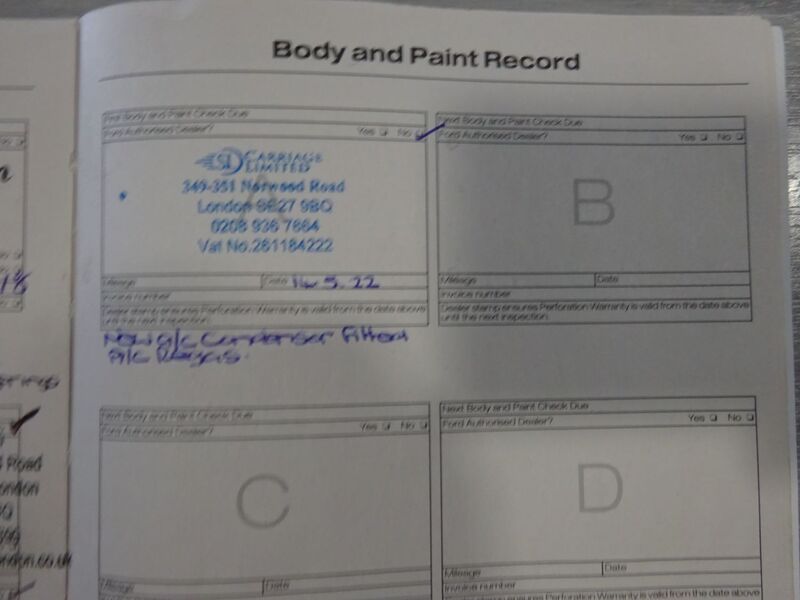 Body and Paint Record
First Body and Paint Check Due
Ford Authorised Dealer? Yes No
CARRIAGE
LIMITED
349-351 Norwood Road
London SE27 9BQ
0208 936 7864
Vat No.261184222
A
Mileage Date 16 5.22
Invoice number
Dealer stamp ensures Perforation Warranty is valid from the date above
until the next inspection.
New a/c Condenser fitted
A/c Regas.
Next Body and Paint Check Due
Ford Authorised Dealer? Yes No
B
Mileage Date
Invoice number
Dealer stamp ensures Perforation Warranty is valid from the date above
until the next inspection.
Next Body and Paint Check Due
Ford Authorised Dealer? Yes No
C
Mileage Date
Next Body and Paint Check Due
Ford Authorised Dealer? Yes No
D
Mileage Date
Invoice number
Dealer stamp ensures Perforation Warranty is valid from the date above
Road
ondon.co.uk